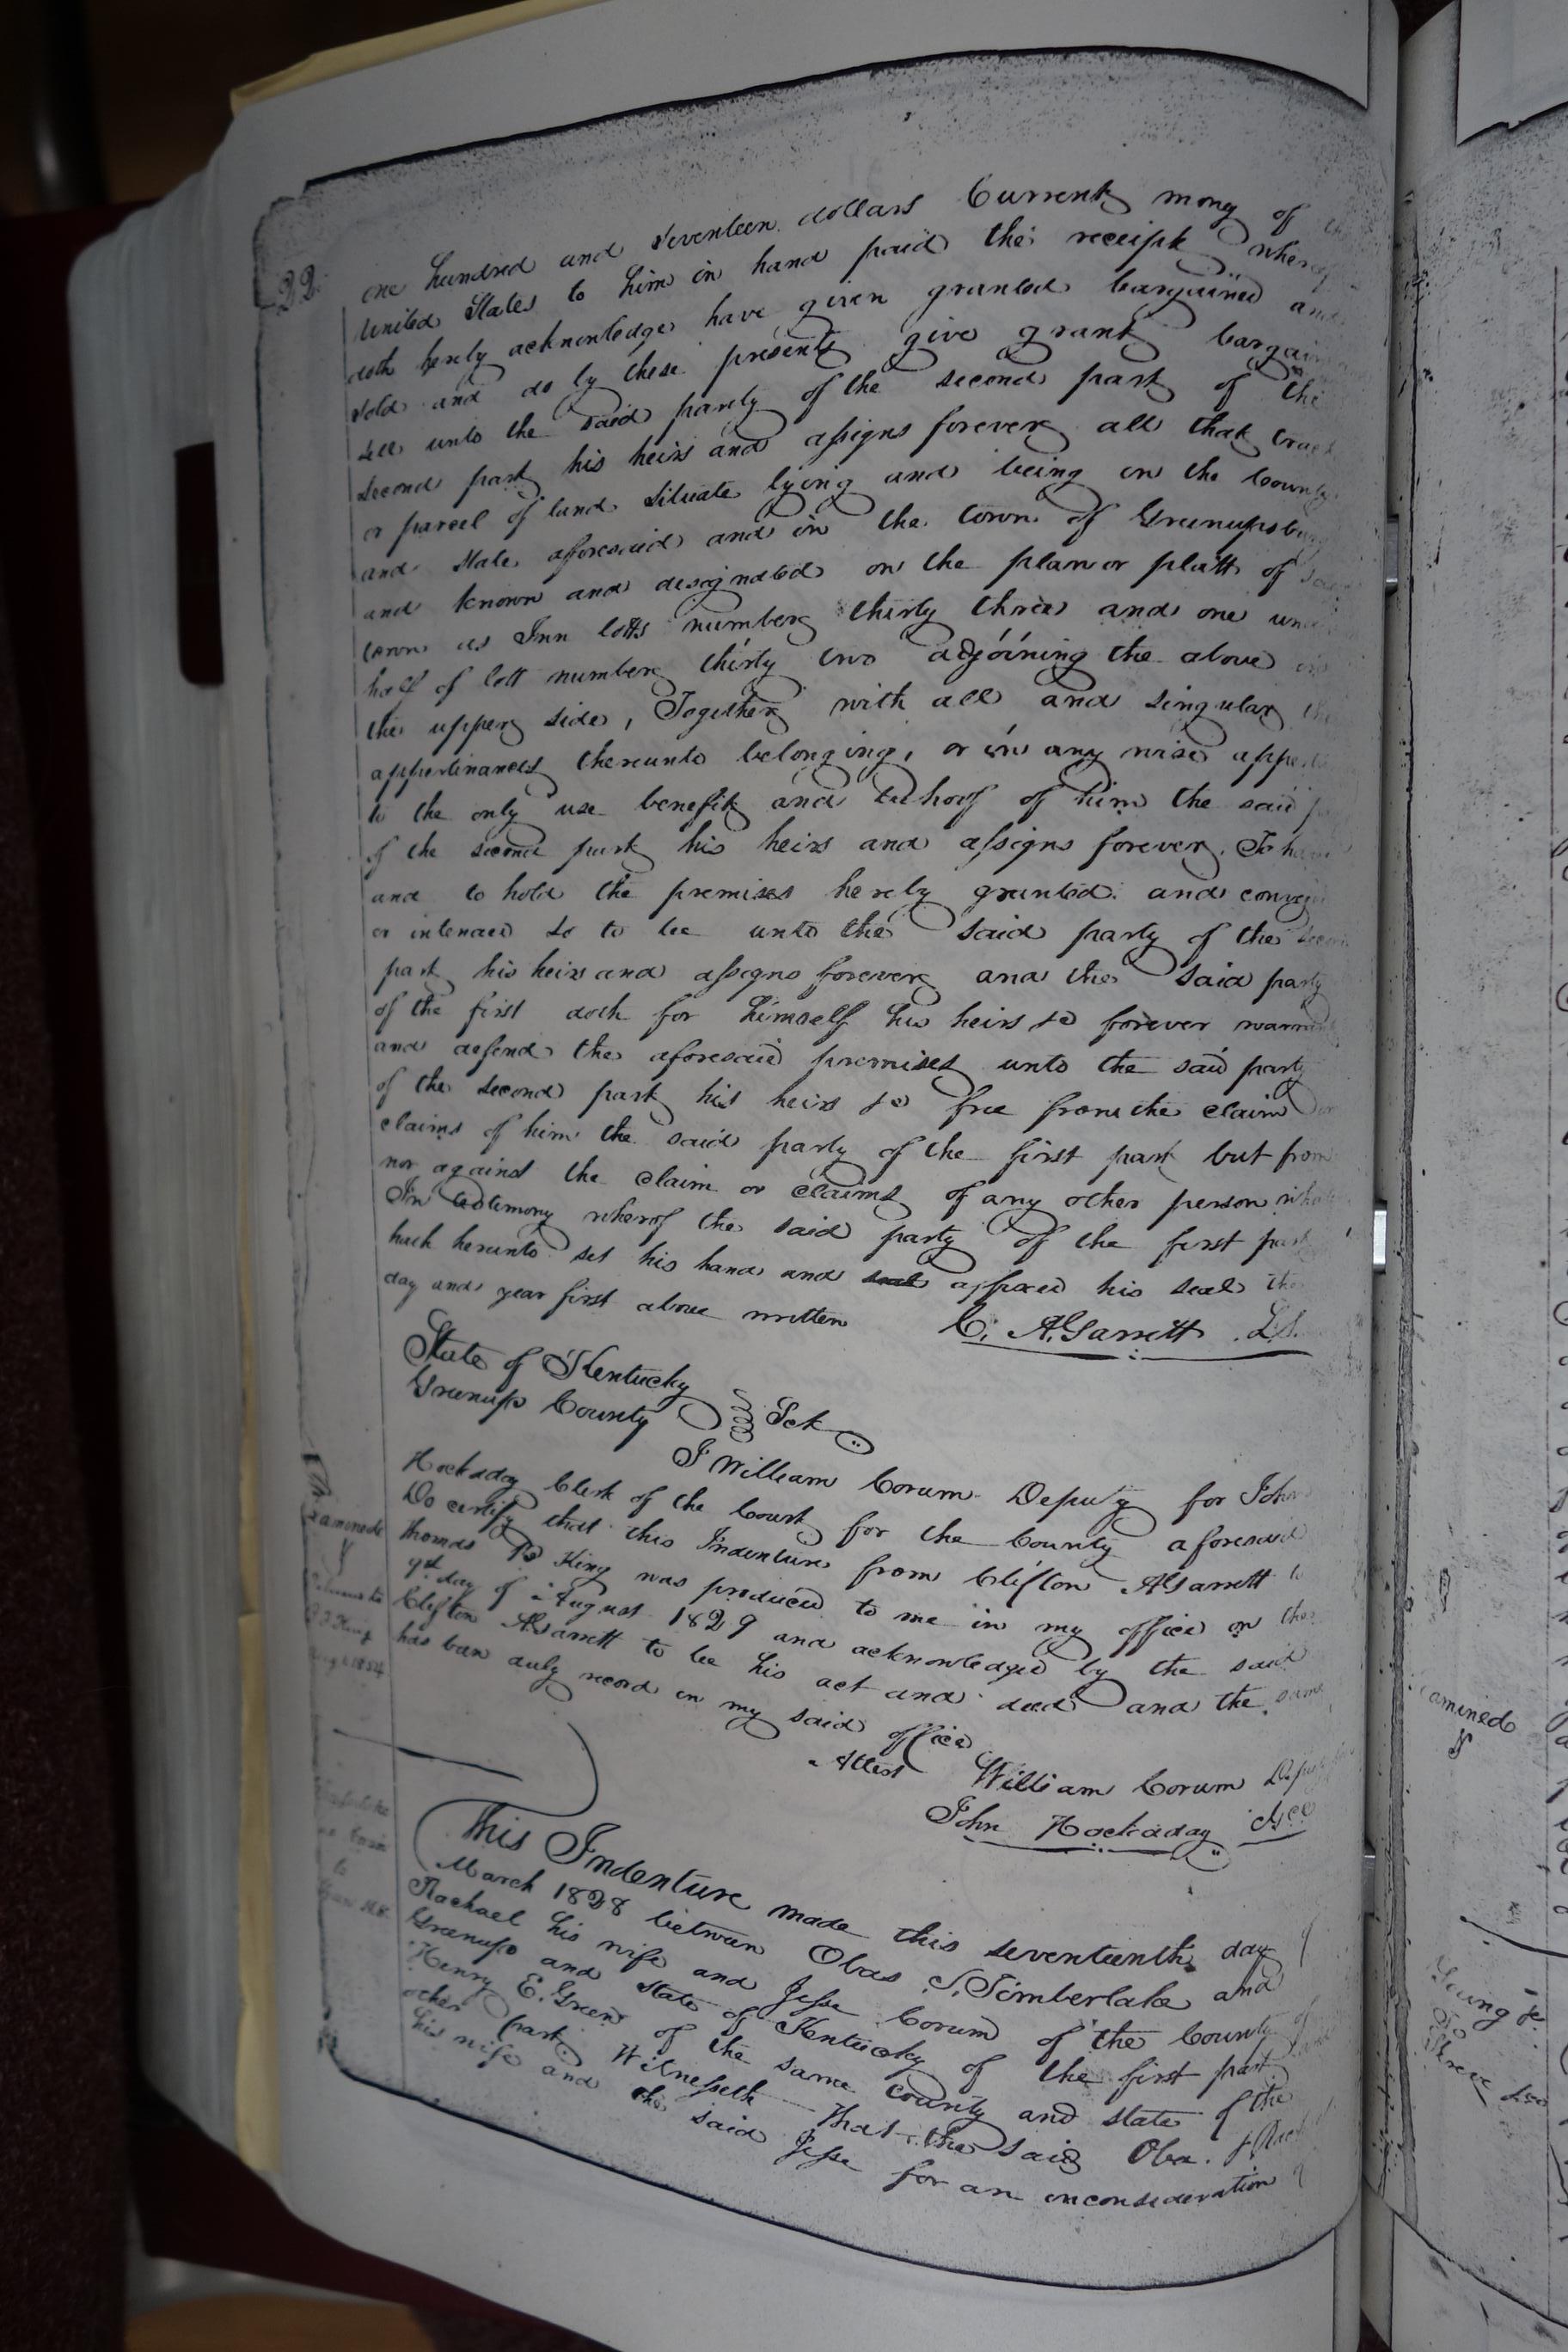 22
one hundred and seventeen dollars Current money of the
United States to him in hand paid the receipt whereof
doth herely acknowledge have given granted bargained and
sold and do by these presents give grant bargain
sell unto the said party of the second part of the
second part his heirs and assigns forever all that tract
or parcel of land situate lying and being in the County
and State afforesaid and in the town of Greenupsburg
and known and designated on the plan or platt of said
town as Inn lotts number thirty three and one
half of lott number thirty two adjoining the above on
the upper side, Together with all and singular the
appertinances thereunto belonging, or in any wise
to the only use benefit and behoof of him the said
of the second part his heirs and assigns forever. To have
and to hold the premises herely granted and
or intended so to be unto the said party of the second
part his heirs and assigns forever and the said party
of the first doth for himself his heirs &c forever warrant
and defend the aforesaid premises unto the said party
of the second part his heirs &c free from the claim or
claims of him the said party of the first part but from
nor against the claim or claims of any other person
In testimony wherof the said party of the first part
hath herunto set his hand and seal affixed his seal the
day and year first above written C. A. Garrett L.S.
State of Kentucky
Greenup County Sct
I William Corum Deputy for John
Hockaday Clerk of the Court for the County aforesaid
Do certify that this Indenture from Clifton A Garrett to
Thomas B King was produced to me in my office on the
day of August 1829 and acknowledged by the said
Clifton A Garrett to be his act and deed and the same
has ban duly record in my said office
Attest William Corum
John Hockaday
Examined
This Indenture made this seventeenth day of
March 1828 between Obas S. Timberlake and
Rachael his wife and Jesse Corum of the County of
Greenup and State of Kentucky of the first part
Henry E. Green of the same county and state of the
other part Witnesseth That the said Oba. &
his wife and the said Jesse for an inconsideration of
amined